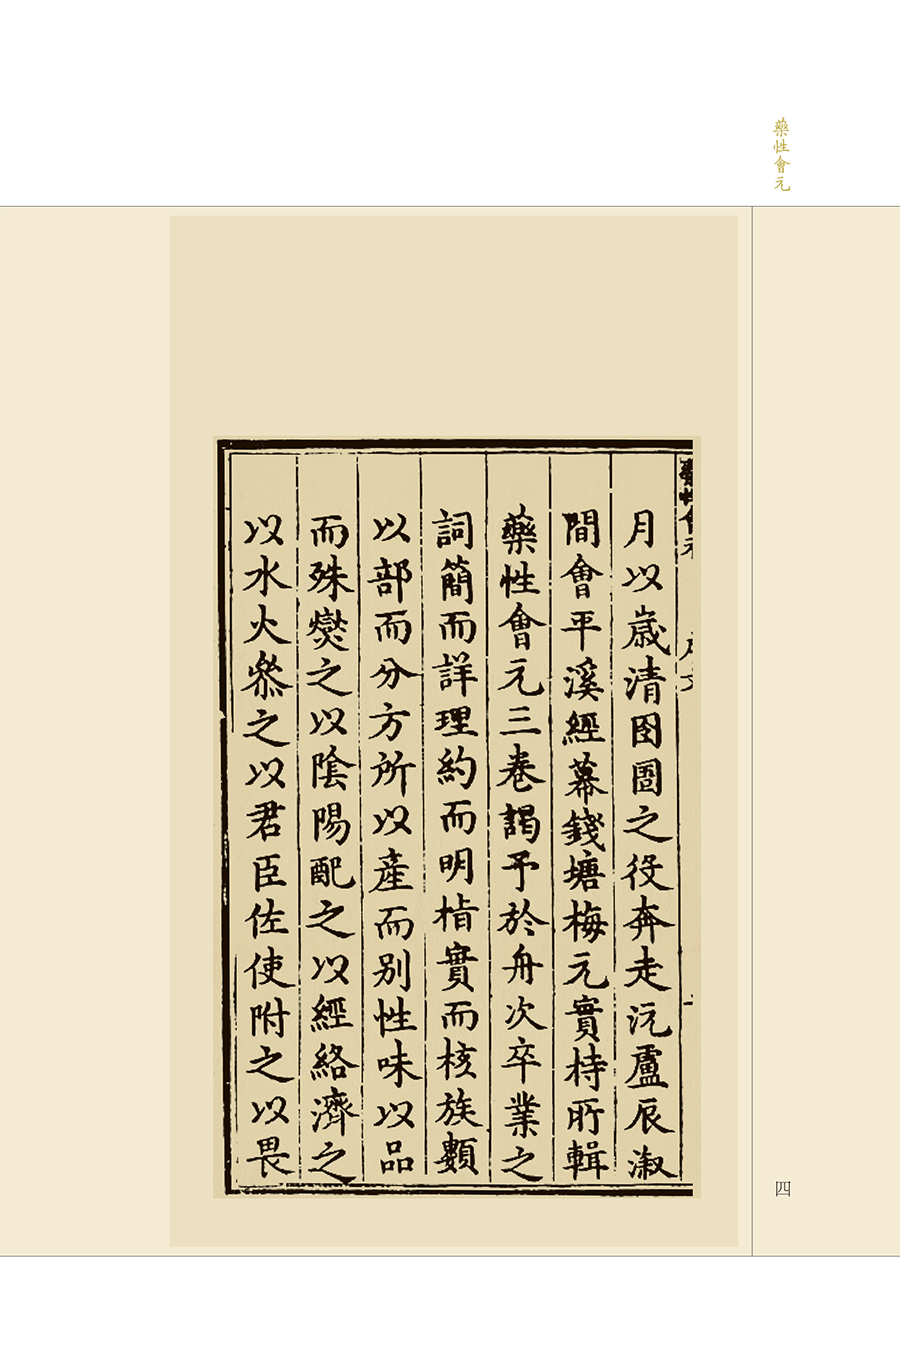 藥性會元
月以歲清囹圄之役奔走沅盧辰溆
間會平溪經幕錢塘梅元實持所輯
藥性會元三卷謁予於舟次卒業之
詞簡而詳理約而明楷實而核族類
以部而分方所以產而别性味以品
而殊爕之以陰陽配之以經絡濟之
以水火叅之以君臣佐使附之以畏
四